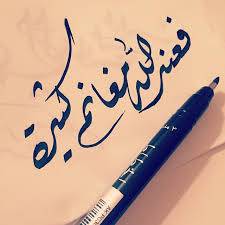 فعند الله مغانم كثيرة